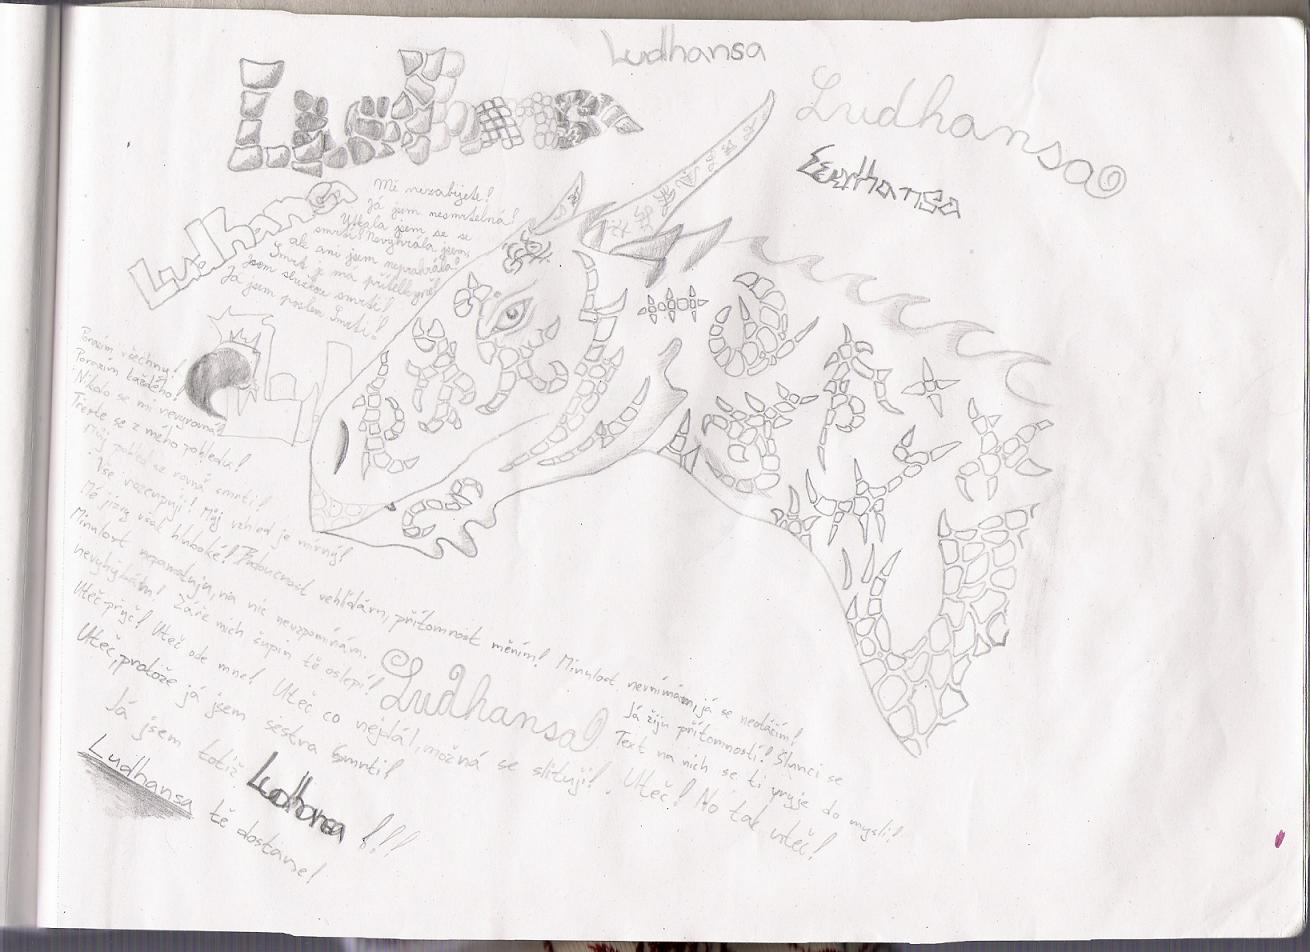 Ludhansa
Ludhansa
Ludhansa
Ludhansa
Ludhansa
Mě nezabijete!
Já jsem nesmrtelná!
Utkala jsem se se
smrtí! Nevyhrála jsem,
ale ani jsem neprohrála!
Smrt je má přítelkyně!
Jsem služkou smrti!
Já jsem poslem Smrti!
Porazím všechny!
Porazím každého!
Nikdo se mi nevyrovná!
Třeste se z mého pohledu!
Můj pohled se rovná smrti!
Můj vzhled je mírný!
Mé jizvy však hluboké! Budoucnost vehlídám, přítomnost měním! Minulost nevnímám, já se neotáčím!
Minulost nepamatuju, na nic nevzpomínám. Já žiju přítomností! Slunci se
nevyhýbám! Záře mích šupin tě oslepí! Text na nich se ti vryje do mysli!
Uteč pryč! Uteč ode mne! Uteč co nejdál, možná se slituji! Uteč! No tak uteč!
Uteč, protože já jsem sestra Smrti!
Ludhansa
Já jsem totiž Ludhansa!!!
Ludhansa tě dostane!